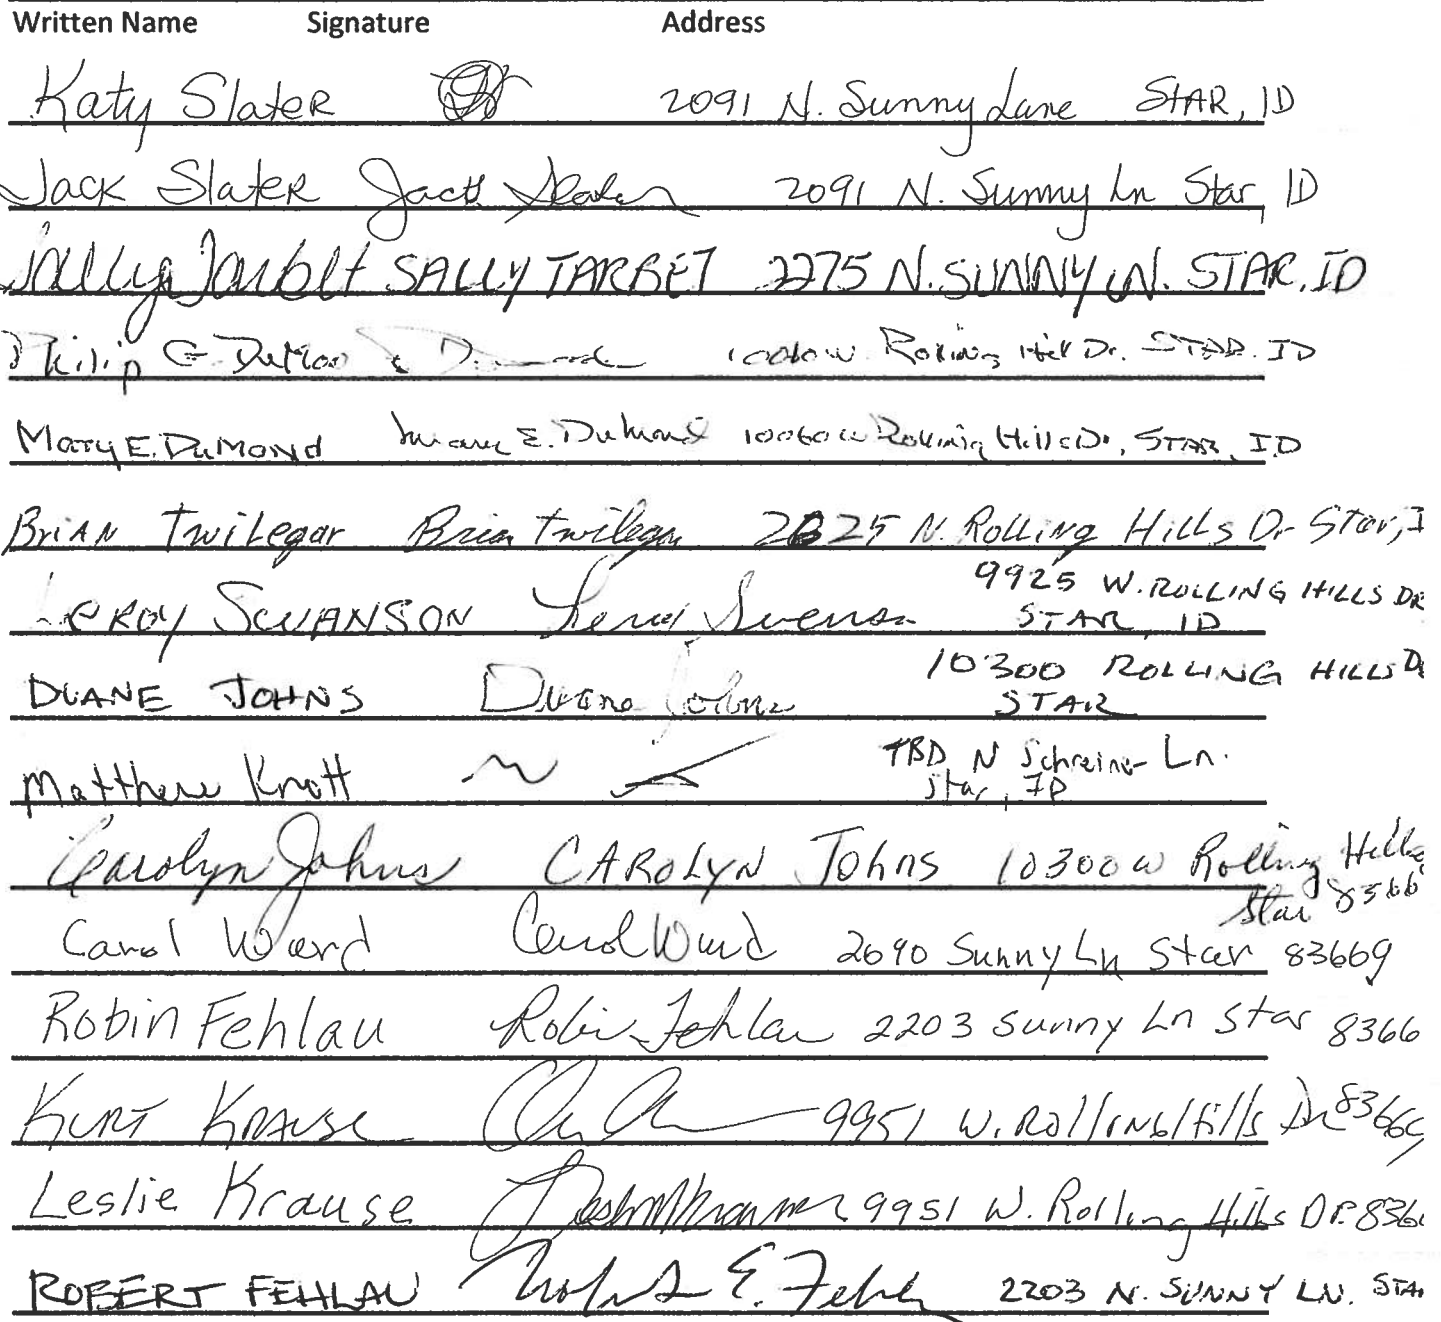 Written Name Signature Address
Katy Slater 2091 N. Sunny Lane STAR, ID
Jack Slater Jack Slater 2091 N. Sunny Ln Star, ID
SALLY TARBET 2275 N. SUNNY LN. STAR, ID
Philip G. Rolling Hill Dr. STAR, ID
Mary E. DuMond Mary E. DuMond 10060 W Rolling Hills Dr, STAR, ID
BriAN TwiLegar Brian Twilegar N. Rolling Hills Dr Star, I
LeROY SWANSON 9925 W. ROLLING HILLS DR
STAR, ID
DUANE JOHNS Duane Johns 10300 ROLLING HILLS D
STAR
Matthew Knott TBD N Schreiner Ln.
Star, ID
Carolyn Johns CAROLYN Johns 10300 W Rolling Hills
Star
Carol Ward Carol Ward 2690 Sunny Ln Star 83669
Robin Fehlau Robin Fehlau 2203 Sunny Ln Star 8366
KURT KRAUSE 9951 W. Rolling Hills Dr 83669
Leslie Krause 9951 W. Rolling Hills Dr. 8366
ROBERT FEHLAU 2203 N. SUNNY LN. STA